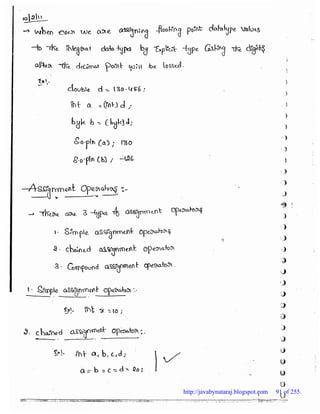 10/2/11
→ when ever we are assigning floating point datatype values
to the Integral data type by Explicit type Casting The digits
after The decimal point will be lossed.
Ex:-
double d = 130.456;
int a = (int) d;
byte b = (byte) d;
S.o.pln (a); 130
S.o.pln (b); -126
→ Assignment Operators :-
→ There are 3 types of assignment operators
1. Simple assignment operators
2. chained assignment operators
3. Compound assignment operators.
1. Simple assignment operators :-
Ex:- int x = 10;
2. chained assignment operators :-
Ex:- int a, b, c, d;
a = b = c = d = 20;
http://javabynataraj.blogspot.com 91 of 255.